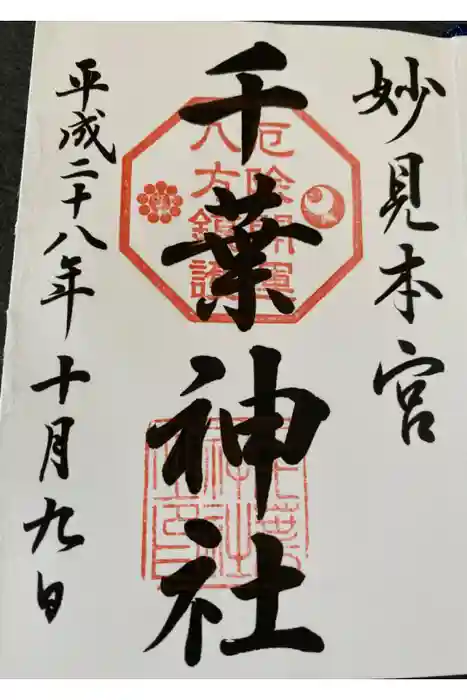 妙見本宮
千葉神社
厄除開運
八方鎮護
平成二十八年十月九日